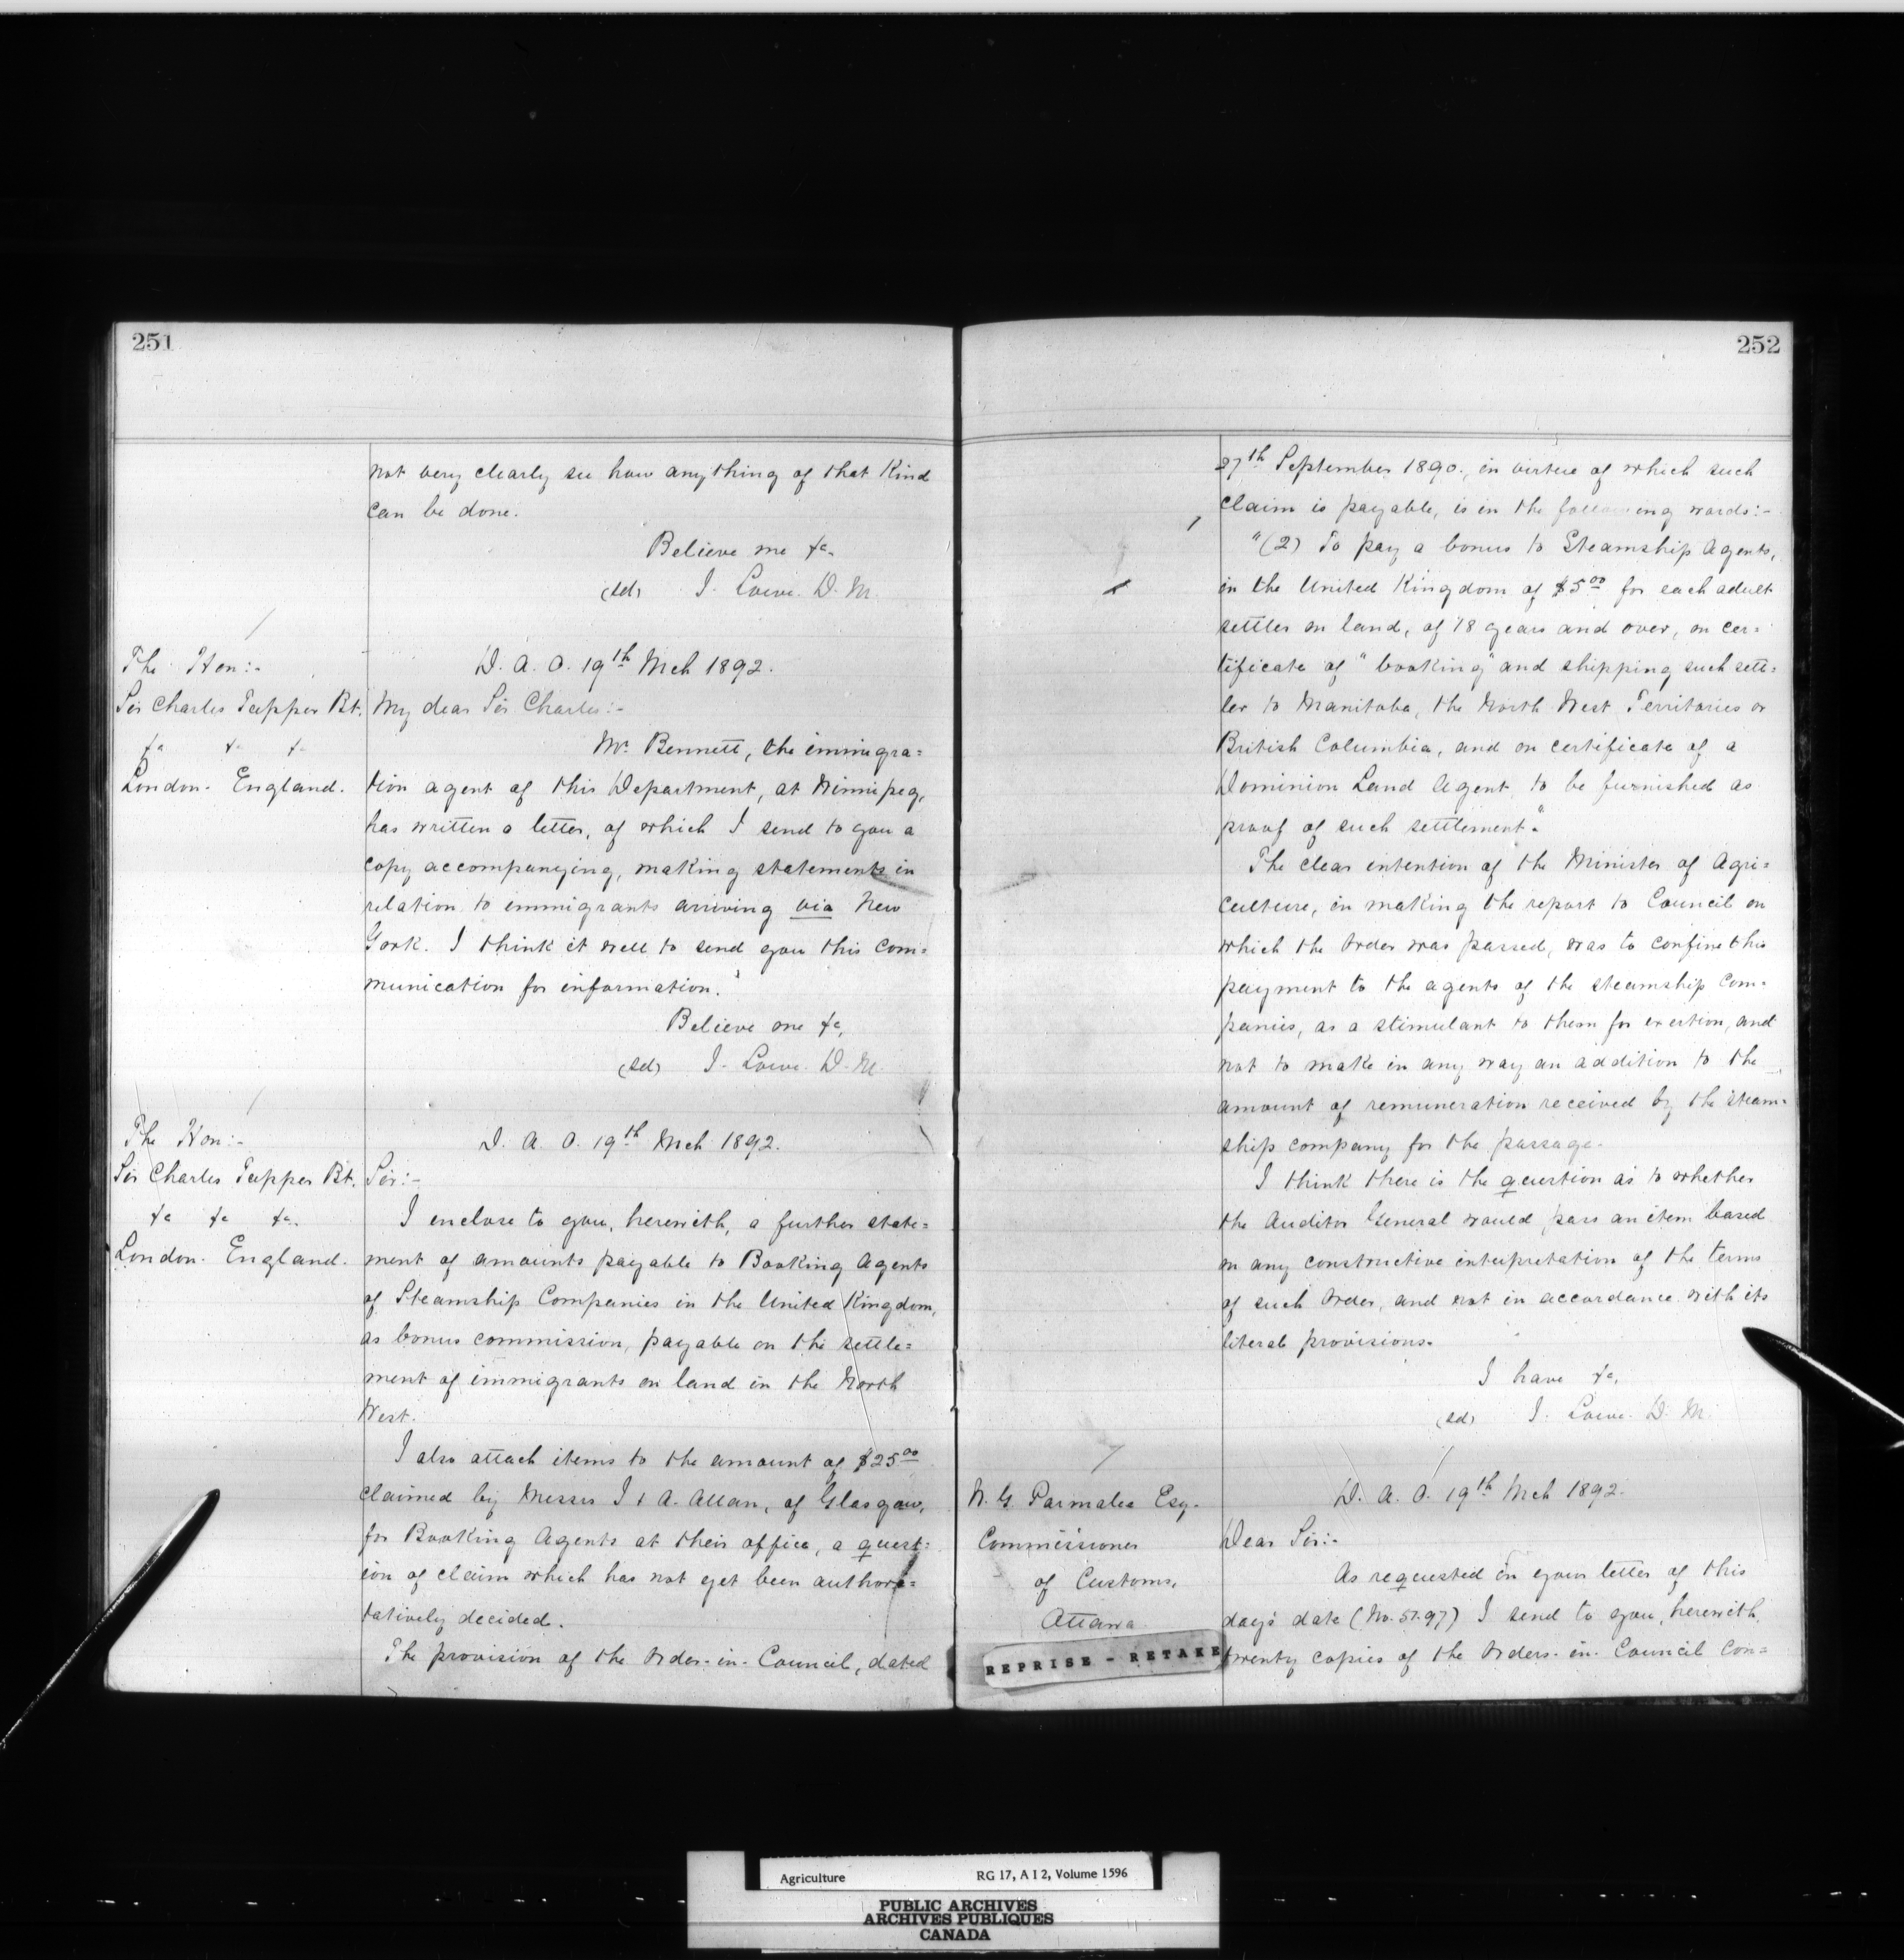 251
not very clearly see how anything of that kind
can be done.
Believe me &c.
(sd) J. Lowe. D. M.
The Hon:-
Sir Charles Tupper Bt.
&c &c &c
London. England.
D. A. O. 19th Mch 1892.
My dear Sir Charles:-
Mr. Bennett, the immigra=
tion agent of this Department, at Winnipeg,
has written a letter, of which I send to you a
copy accompanying, making statements in
relation to immigrants arriving via New
York. I think it well to send you this com=
munication for information.
Believe me &c,
(sd) J. Lowe. D. M.
The Hon:-
Sir Charles Tupper Bt.
&c &c &c.
London. England.
D. A. O. 19th Mch 1892.
Sir:-
I enclose to you, herewith, a further state=
ment of amounts payable to Booking Agents
of Steamship Companies in the United Kingdom,
as bonus commission, payable on the settle=
ment of immigrants on land in the North
West.
I also attach items to the amount of $25.00
claimed by Messrs J & A. Allan, of Glasgow,
for Booking Agents at their office, a quest=
ion of claim which has not yet been authori=
tatively decided.
The provision of the Order-in-Council, dated
252
27th September 1890., in virtue of which such
claim is payable, is in the following words:-
"(2) To pay a bonus to Steamship Agents,
in the United Kingdom of $5.00 for each adult
settler on land, of 18 years and over, on cer=
tificate of "booking" and shipping such sett=
ler to Manitoba, the North West Territories or
British Columbia, and on certificate of a
Dominion Land Agent, to be furnished as
proof of such settlement."
The clear intention of the Minister of Agri=
culture, in making the report to Council on
which the Order was passed, was to confine this
payment to the agents of the steamship com=
panies, as a stimulant to them for exertion, and
not to make in any way an addition to the
amount of remuneration received by the steam=
ship company for the passage.
I think there is the question as to whether
the Auditor General would pass an item based
on any constructive interpretation of the terms
of such Order, and not in accordance with its
literal provisions.
I have &c,
(sd) J. Lowe. D. M.
W. G. Parmalee Esq.
Commissioner
of Customs,
Ottawa
D. A. O. 19th Mch 1892.
Dear Sir:-
As requested in your letter of this
day's date (No. 5197) I send to you, herewith,
twenty copies of the Orders-in-Council con=
REPRISE - RETAKE
Agriculture RG 17, A I 2, Volume 1596
PUBLIC ARCHIVES
ARCHIVES PUBLIQUES
CANADA